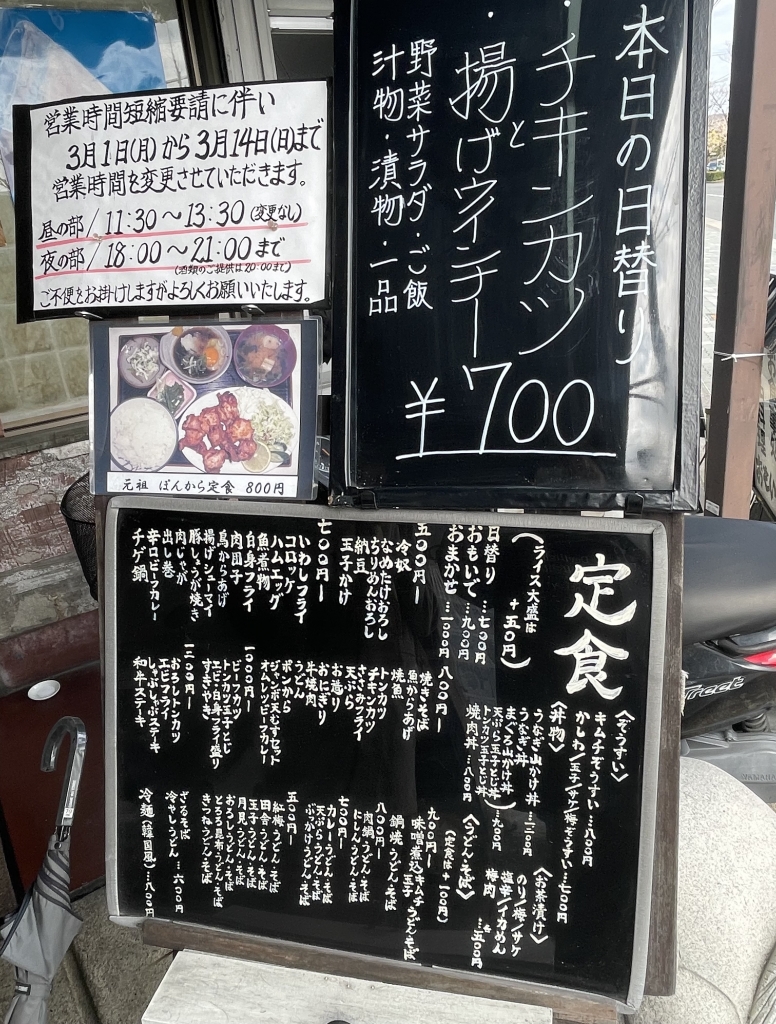 営業時間短縮要請に伴い
3月1日(月)から3月14日(日)まで
営業時間を変更させていただきます。
昼の部/11:30〜13:30(変更なし)
夜の部/18:00〜21:00まで
(酒類のご提供は20:00まで)
ご不便をお掛けしますがよろしくお願いいたします。
本日の日替り
・チキンカツ
と
・揚げウインナー
野菜サラダ・ご飯
汁物・漬物・一品
¥700
元祖 ぽんから定食 800円
定食
(ライス大盛は
+五0円)
日替り…七00円
おもいで…九00円
おまかせ…一000円
五00円ー
冷奴
なめたけおろし
ちりめんおろし
納豆
玉子かけ
七00円ー
いわしフライ
コロッケ
ハムエッグ
魚煮物
白身フライ
肉団子
鳥からあげ
揚げシューマイ
豚しょうが焼き
肉じゃが
出し巻
辛口ビーフカレー
チゲ鍋
八00円ー
焼きそば
魚からあげ
焼魚
トンカツ
チキンカツ
ささみフライ
天ぷら
お造り
おにぎり
牛焼肉
うどん
ポンから
ジャンボ天むすセット
オムレツビーフカレー
一000円ー
ビーフカツ
トンカツ玉子とじ
エビ・白身フライ盛り
すきやき
一二00円ー
おろしトンカツ
エビフライ
しゃぶしゃぶステーキ
和牛ステーキ
〈ぞうすい〉
キムチぞうすい…八00円
かしわ/玉子/サケ/梅ぞうすい…七00円
〈丼物〉
うなぎ山かけ丼
うなぎ丼…一二00円
まぐろ山かけ丼
天ぷら玉子とじ丼
トンカツ玉子とじ丼…九00円
焼肉丼…八00円
〈お茶漬け〉
のり/梅/サケ
塩辛/イカめん
梅肉 各…五00円
〈うどん・そば〉
(定食は+一00円)
九00円ー
味噌煮込キムチ
鍋焼 玉子うどん・そば
八00円ー
肉鍋うどん・そば
にしんうどん・そば
七00円ー
カレーうどん・そば
天ぷらうどん・そば
ぶっかけうどん・そば
五00円ー
紅梅うどん・そば
田舎うどん・そば
玉子うどん・そば
月見うどん・そば
おろしうどん・そば
とろろ昆布うどん・そば
きつねうどん・そば
ざるそば
冷やしうどん…六00円
冷麺(韓国風)…八00円